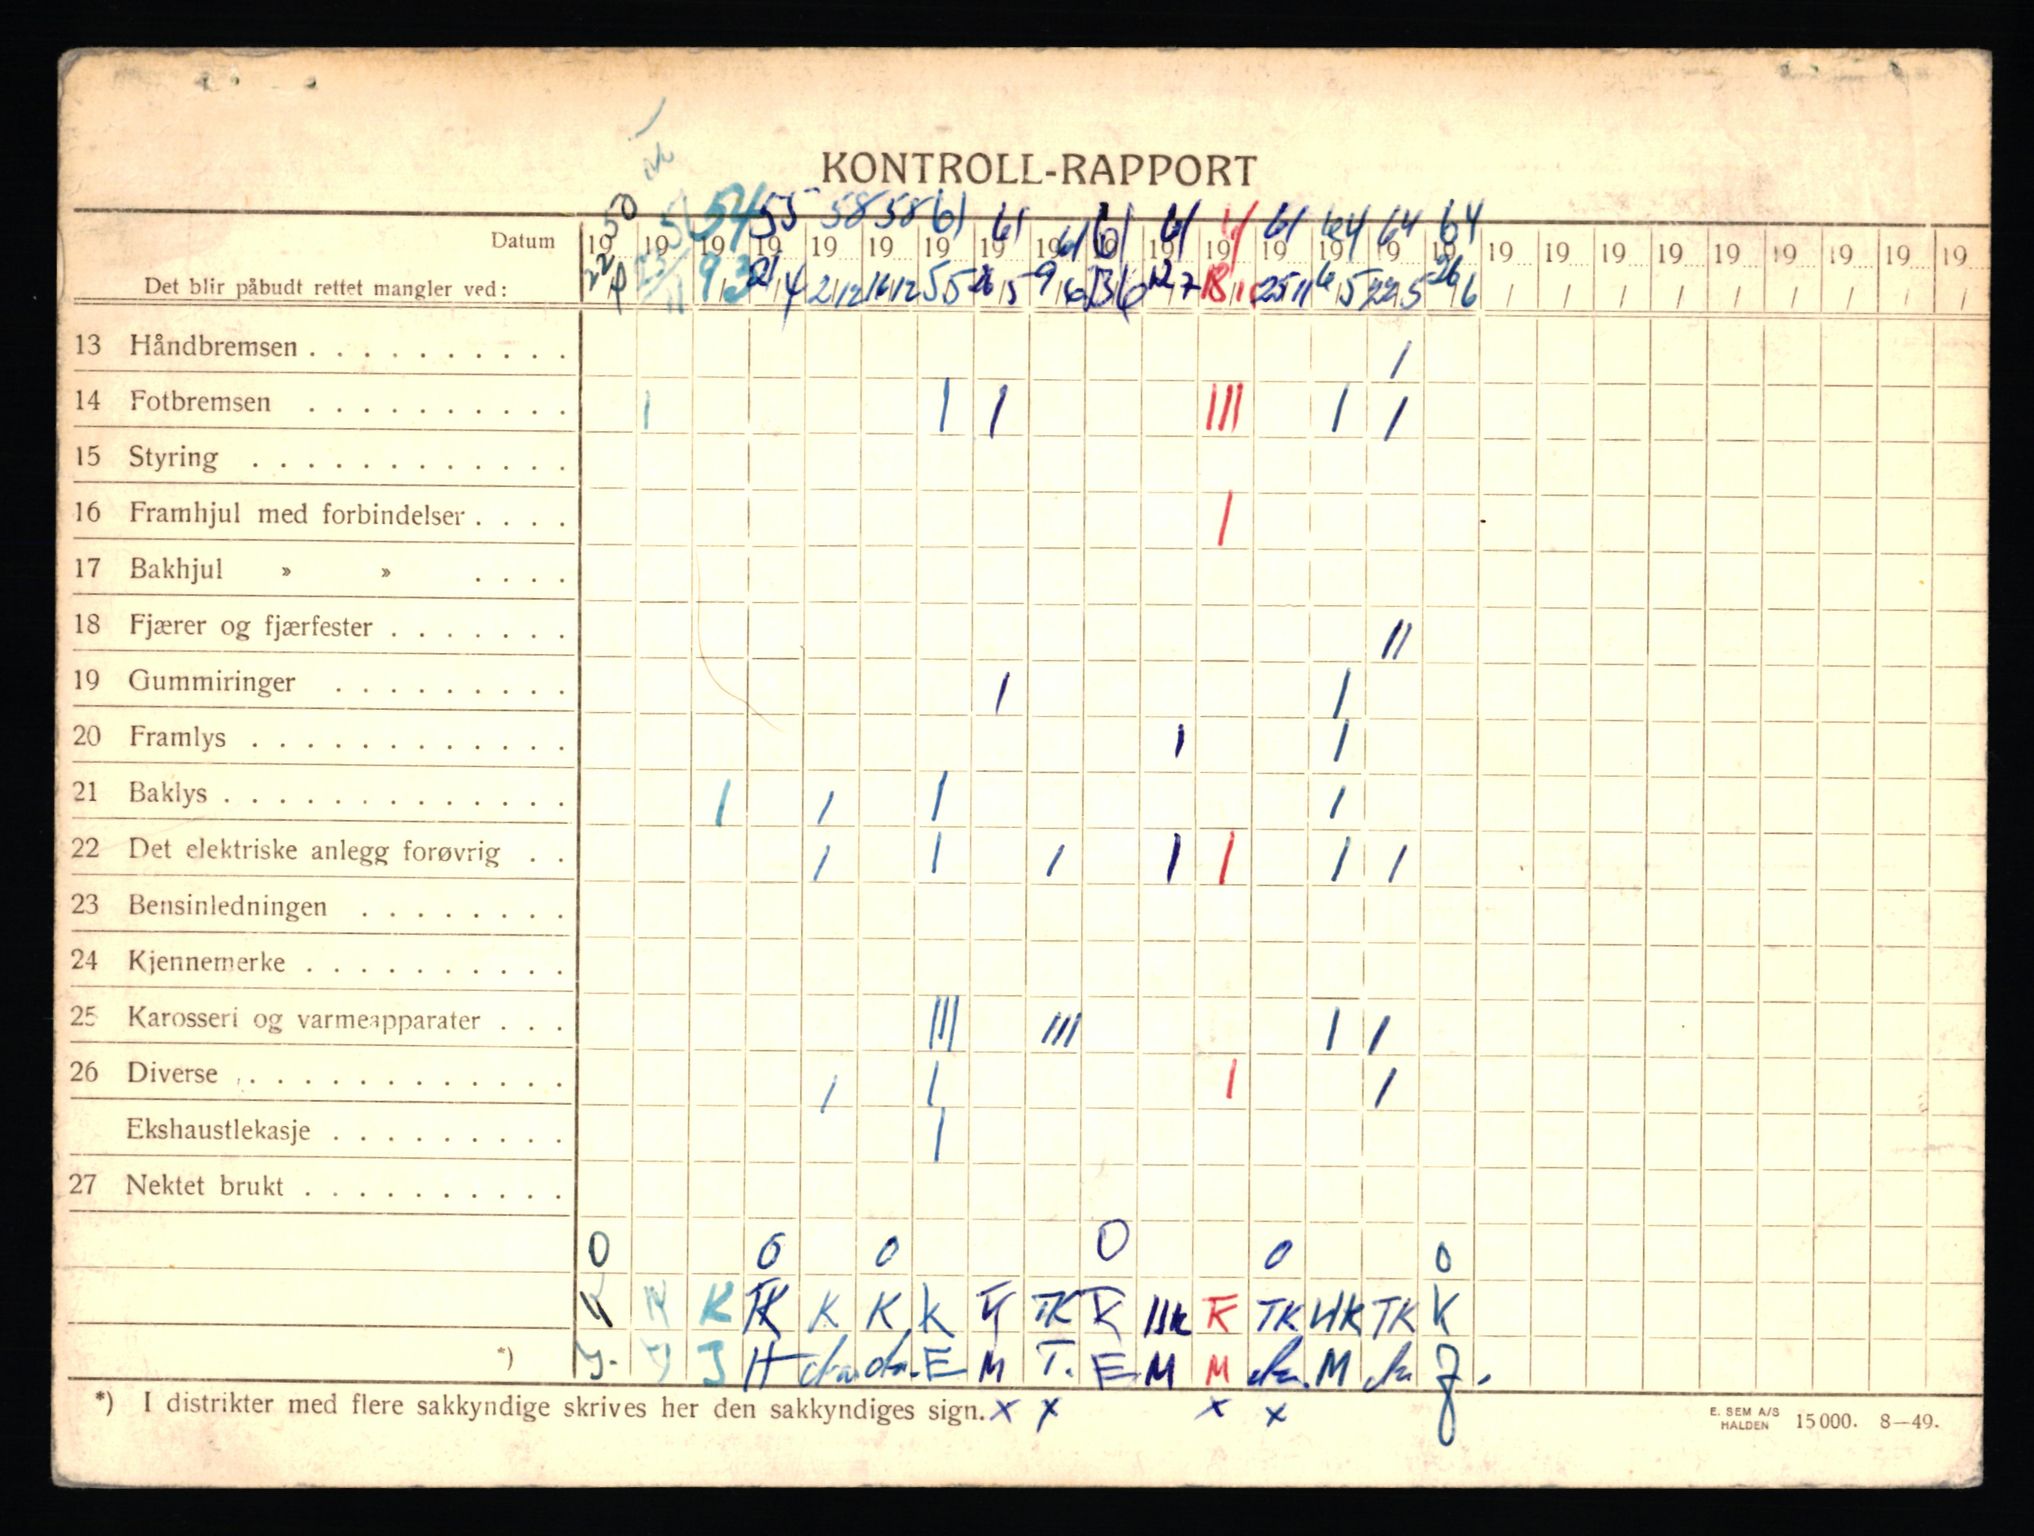 KONTROLL-RAPPORT
50 54 55 58 58 61 61 61 61 61 61 61 64 64 64
Datum 19 19 19 19 19 19 19 19 19 19 19 19 19 19 19 19 19 19 19 19 19 19 19 19 19
Det blir påbudt rettet mangler ved: 9 3 21 4 2 12 16 12 5 5 26 5 9 6 13 6 12 7 18 10 25 11 6 5 22 5 26 6 / / / / / / / / /
13 Håndbremsen . . . . . . . . . . /
14 Fotbremsen . . . . . . . . . . | | | ||| | /
15 Styring . . . . . . . . . . . .
16 Framhjul med forbindelser . . . . /
17 Bakhjul » » . . . .
18 Fjærer og fjærfester . . . . . . . //
19 Gummiringer . . . . . . . . . | |
20 Framlys . . . . . . . . . . . . | |
21 Baklys . . . . . . . . . . . . . | / | /
22 Det elektriske anlegg forøvrig . . / | / | | | /
23 Bensinledningen . . . . . . . .
24 Kjennemerke . . . . . . . . . .
25 Karosseri og varmeapparater . . . ||| /// | /
26 Diverse . . . . . . . . . . . . / | | /
Ekshaustlekasje . . . . . . . . . |
27 Nektet brukt . . . . . . . . . .
0 0 0 0 0 0
K K TK K K K K TK K IIK K TK HK TK K
*) J H E M T. E M M M J.
*) I distrikter med flere sakkyndige skrives her den sakkyndiges sign. x x x x
E. SEM A/S
HALDEN 15 000. 8—49.